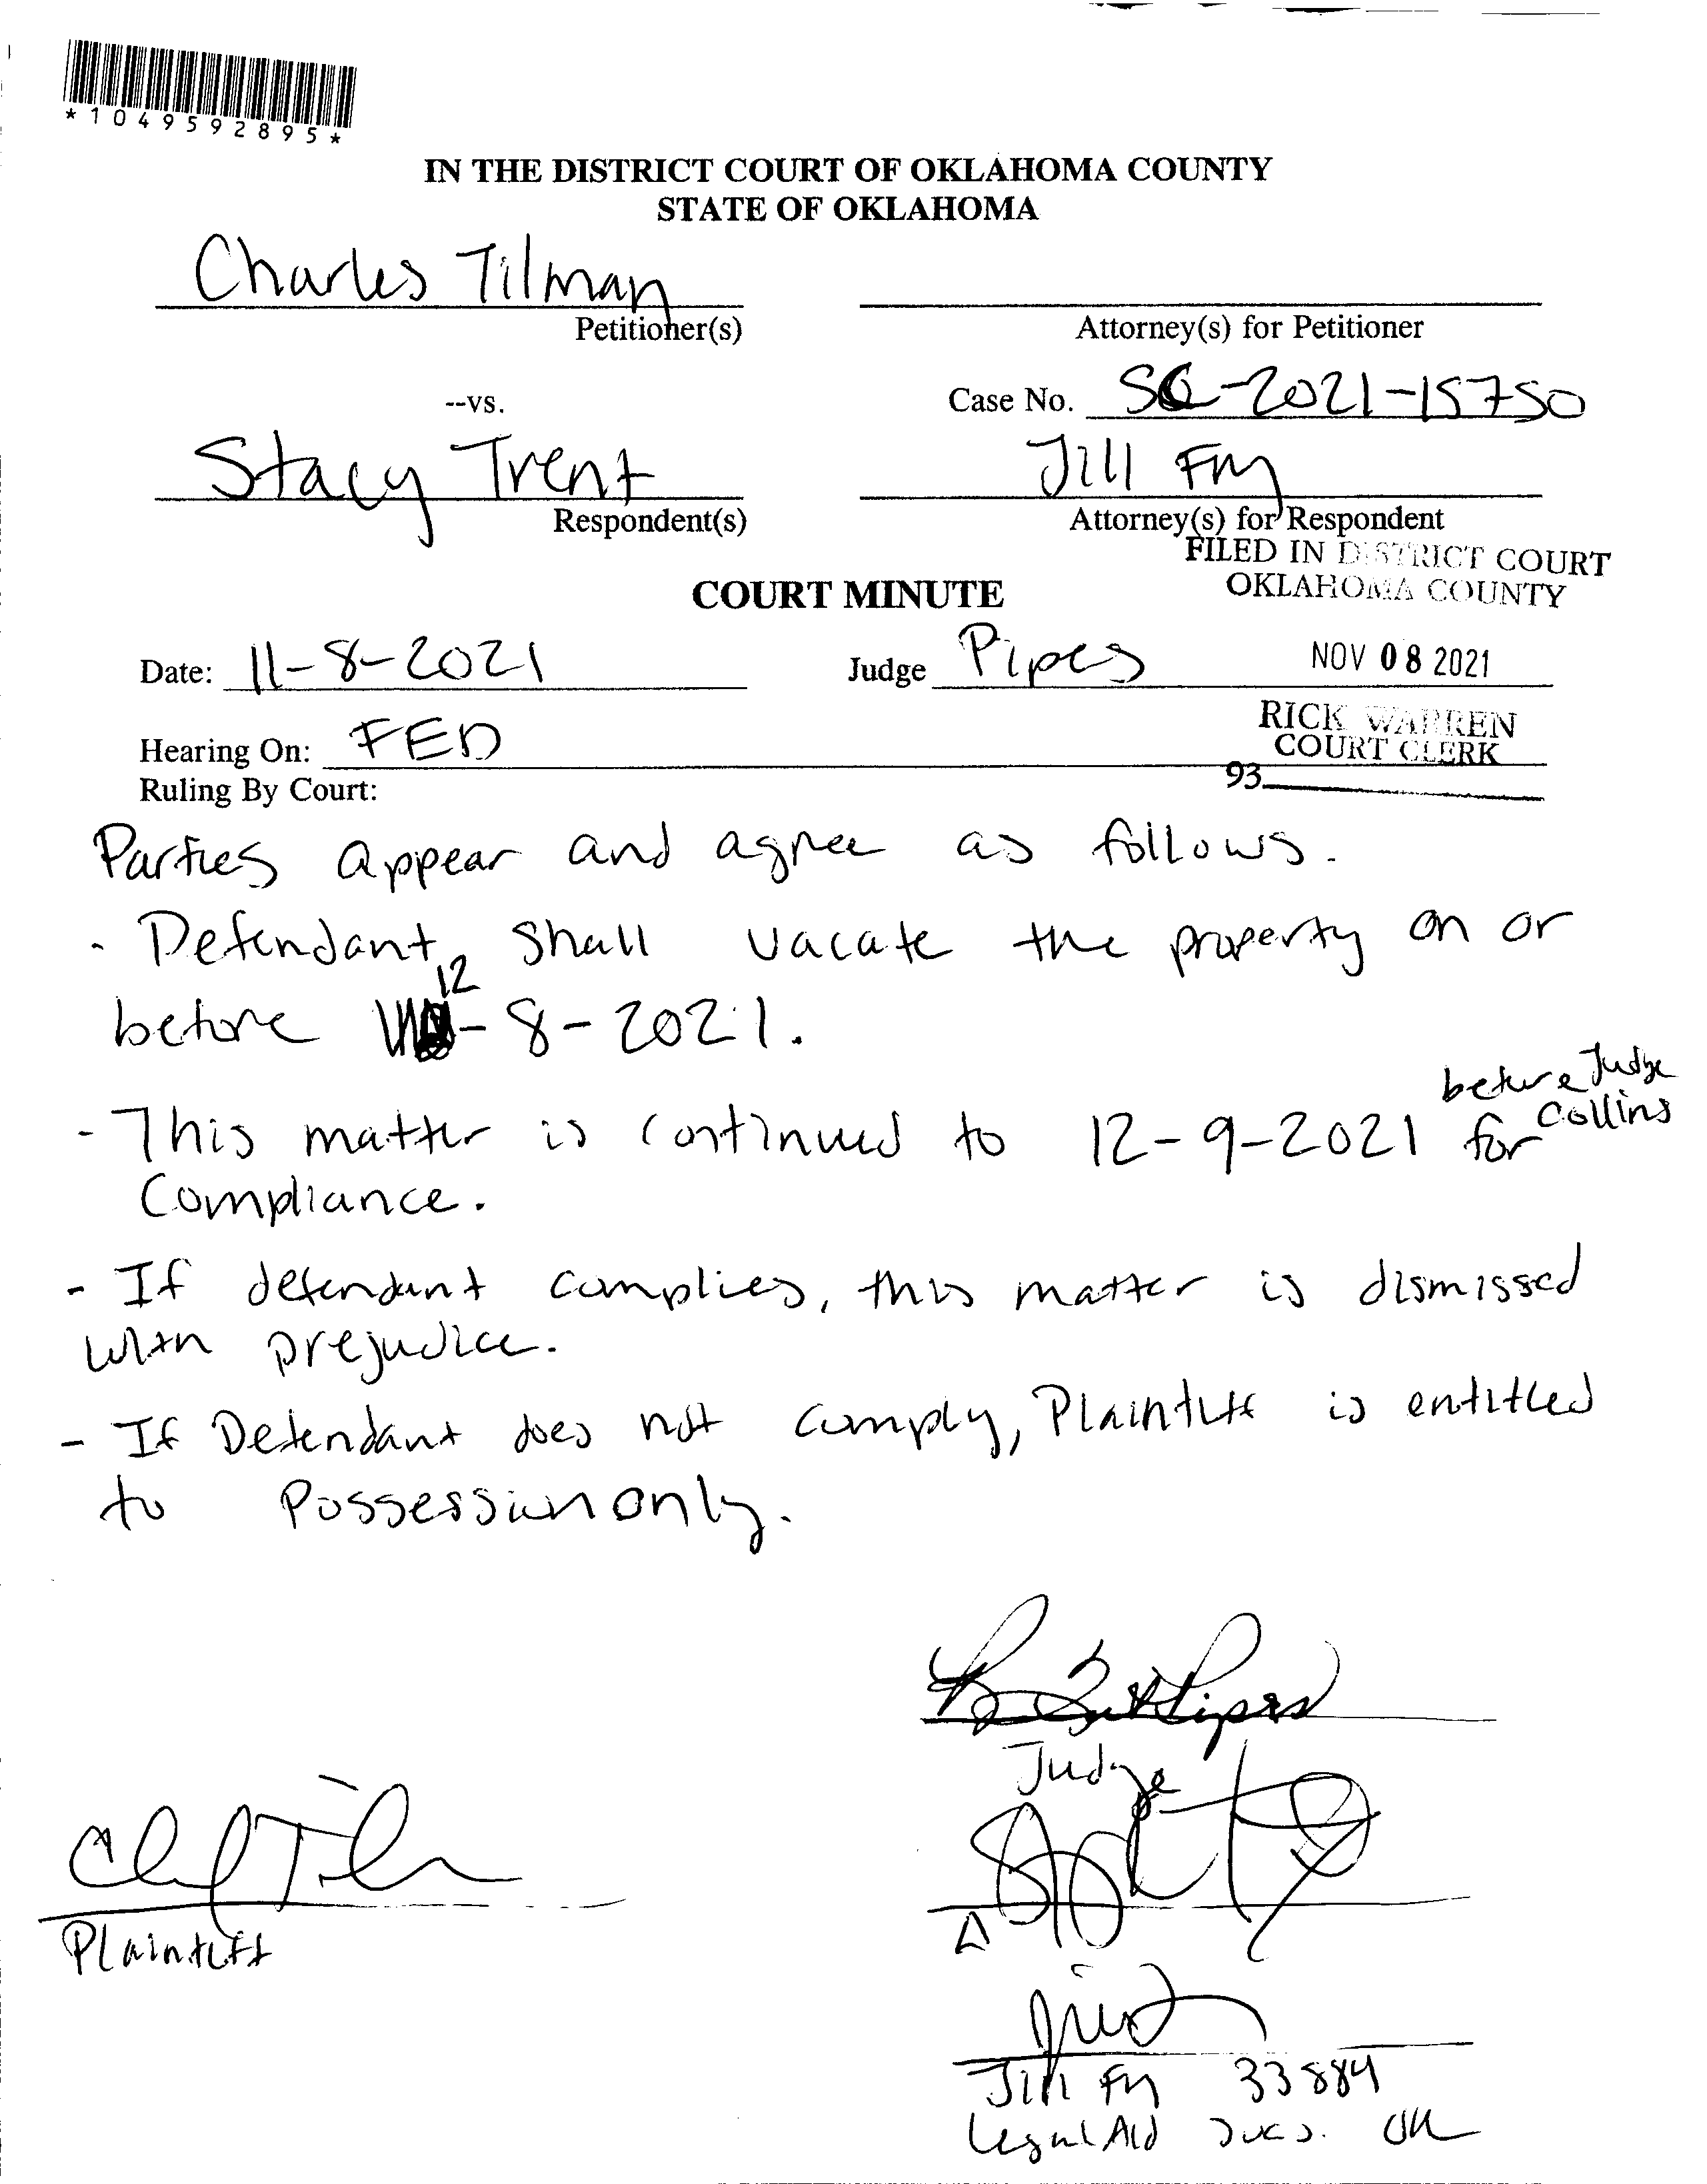 *1049592895*
IN THE DISTRICT COURT OF OKLAHOMA COUNTY
STATE OF OKLAHOMA
Charles Tilman
Petitioner(s)
Attorney(s) for Petitioner
--vs.
Case No. SC-2021-15750
Stacy Trent
Respondent(s)
Jill Fry
Attorney(s) for Respondent
FILED IN DISTRICT COURT
OKLAHOMA COUNTY
COURT MINUTE
Date: 11-8-2021
Judge Pipes
NOV 08 2021
Hearing On: FED
RICK WARREN
COURT CLERK
93
Ruling By Court:
Parties appear and agree as follows.
- Defendant shall vacate the property on or
before 12-8-2021.
- This matter is continued to 12-9-2021 before Judge Collins for
Compliance.
- If defendant complies, this matter is dismissed
with prejudice.
- If Defendant does not comply, Plaintiff is entitled
to Possession only.
Judge
Plaintiff
Δ
Jill Fry 33884
Legal Aid Svcs. OK